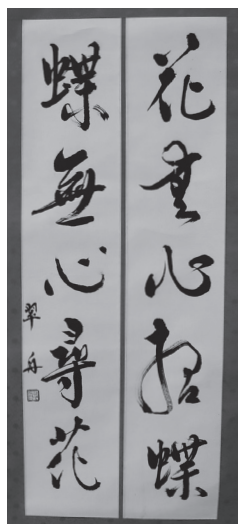 花無心招蝶
蝶無心尋花
翠舟